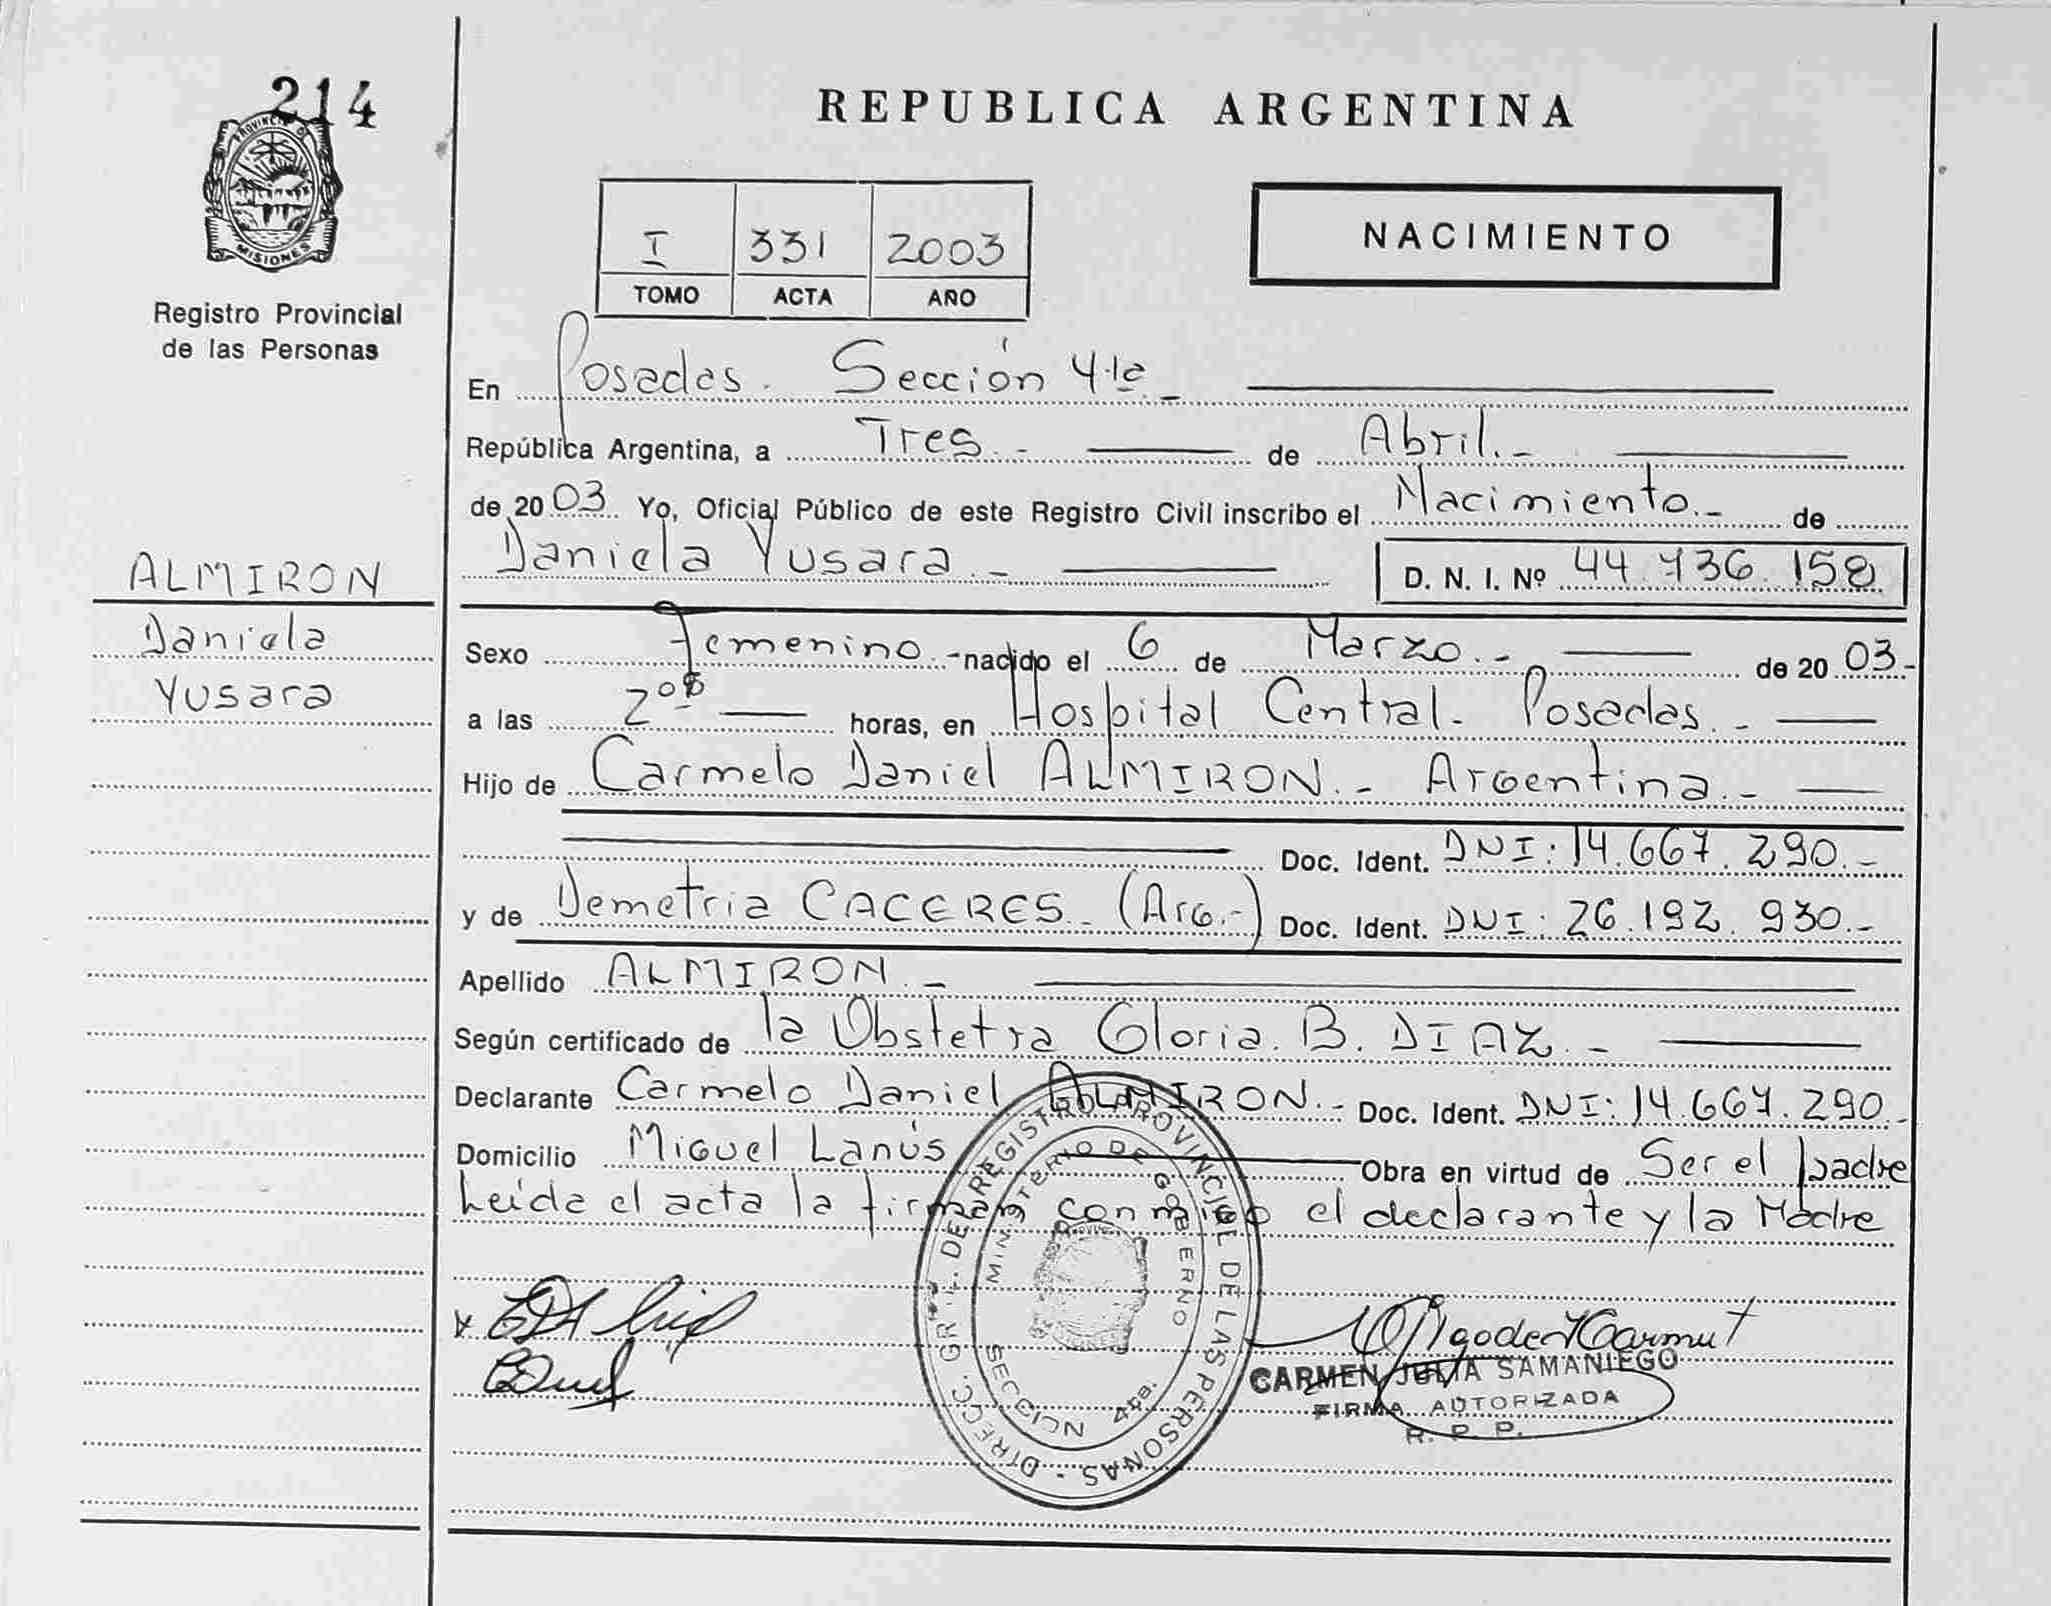 214
PROVINCIA DE
MISIONES
Registro Provincial
de las Personas
ALMIRON
Daniela
Yusara
REPUBLICA ARGENTINA
I 331 2003
TOMO ACTA AÑO
NACIMIENTO
En Posadas. Sección 4ta.-
República Argentina, a Tres.- de Abril.-
de 2003. Yo, Oficial Público de este Registro Civil inscribo el Nacimiento.- de
Daniela Yusara.- D. N. I. Nº 44.736.158
Sexo Femenino.- nacido el 6 de Marzo.- de 2003.-
a las 2 horas, en Hospital Central. Posadas.-
Hijo de Carmelo Daniel ALMIRON.- Argentina.-
Doc. Ident. DNI: 14.667.290.-
y de Demetria CACERES. (Arg.-) Doc. Ident. DNI: 26.192.930.-
Apellido ALMIRON.-
Según certificado de la Obstetra Gloria. B. DIAZ.-
Declarante Carmelo Daniel ALMIRON.- Doc. Ident. DNI: 14.667.290.-
Domicilio Miguel Lanús Obra en virtud de Ser el padre
Leída el acta la firman conmigo el declarante y la Madre
DIRECC. GRAL. DEL REGISTRO PROVINCIAL DE LAS PERSONAS -
MINISTERIO DE GOBIERNO
SECCION 4ta.
CARMEN JULIA SAMANIEGO
FIRMA AUTORIZADA
R. P. P.